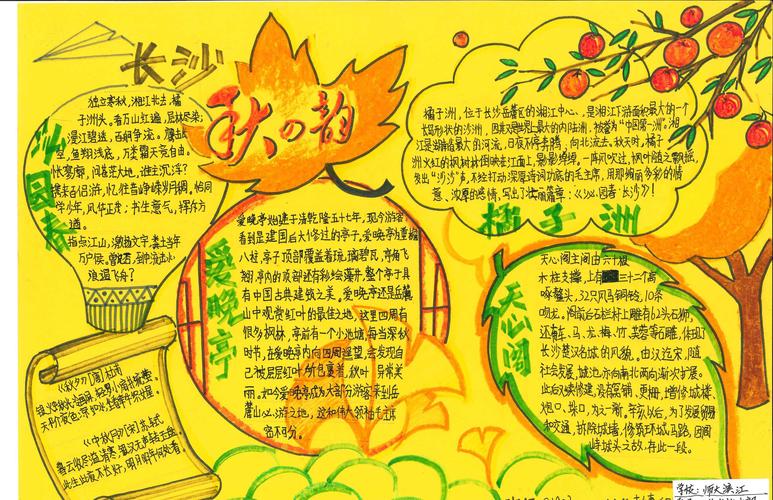 长沙
秋の韵
沁园春
独立寒秋,湘江北去,橘
子洲头。看万山红遍,层林尽染;
漫江碧透,百舸争流。鹰击长
空,鱼翔浅底,万类霜天竞自由。
怅寥廓,问苍茫大地,谁主沉浮?
携来百侣游,忆往昔峥嵘岁月稠。恰同
学少年,风华正茂;书生意气,挥斥方
遒。
指点江山,激扬文字,粪土当年
万户侯。曾记否,到中流击水,
浪遏飞舟?
《秋夕》[唐]杜牧
银烛秋光冷画屏,轻罗小扇扑流萤。
天阶夜色凉如水,
《中秋月》[宋]苏轼
暮云收尽溢清寒,银汉无声转玉盘。
此生此夜不长好,明月明年何处看。
爱晚亭
爱晚亭始建于清乾隆五十七年,现今游客
看到是建国后大修过的亭子。爱晚亭为重檐
八柱,亭子顶部覆盖着琉璃碧瓦,亭角飞
翘,亭内的顶部还有彩绘藻井,整个亭子具
有中国古典建筑之美。爱晚亭还是岳麓
山中观赏红叶的最佳之地,这里四周有
很多枫林,亭前有一个小池塘,每当深秋
时节,在爱晚亭内向四周遥望,会发现自
己被层层红叶所包裹着,秋叶异常美
丽。如今爱晚亭成为大部分游客来到岳
麓山必游之地,这和伟大领袖毛主席
密不可分。
橘子洲,位于长沙岳麓区的湘江中心,是湘江下游面积最大的一个
长岛形状的沙洲,因其是世界上最大的内陆洲,被誉为“中国第一洲”。湘
江是湖南最大的河流,日夜不停奔腾,向北流去。秋天时,橘子
洲火红的枫树林倒映在江面上,影影绰绰,一阵风吹过,枫叶随之飘摇,
发出“沙沙”声,不经打动深厚诗词功底的毛主席,用那绚丽多彩的情
意、浓厚的感情,写出了壮丽篇章:《沁园春·长沙》!
橘子洲
天心阁
天心阁主阁由六十根
木柱支撑,上有三十二个高
啄鳌头,32只风马铜铃,10条
吻龙。阁前后石栏杆上雕有62头石狮,
还有车、马、龙、梅、竹、芙蓉等石雕,体现了
长沙楚汉名城的风貌。由汉迄宋,随
社会发展,城池亦向南北两向渐次扩展。
此后又续修建,设有窝铺、更栅,增修城楼、
炮口、垛口,为之一新。辛亥以后,为了发展贸易
和交通,拆除城墙,修筑环城马路,因阁
峙城头之故,存此一段。
学校:师大滨江